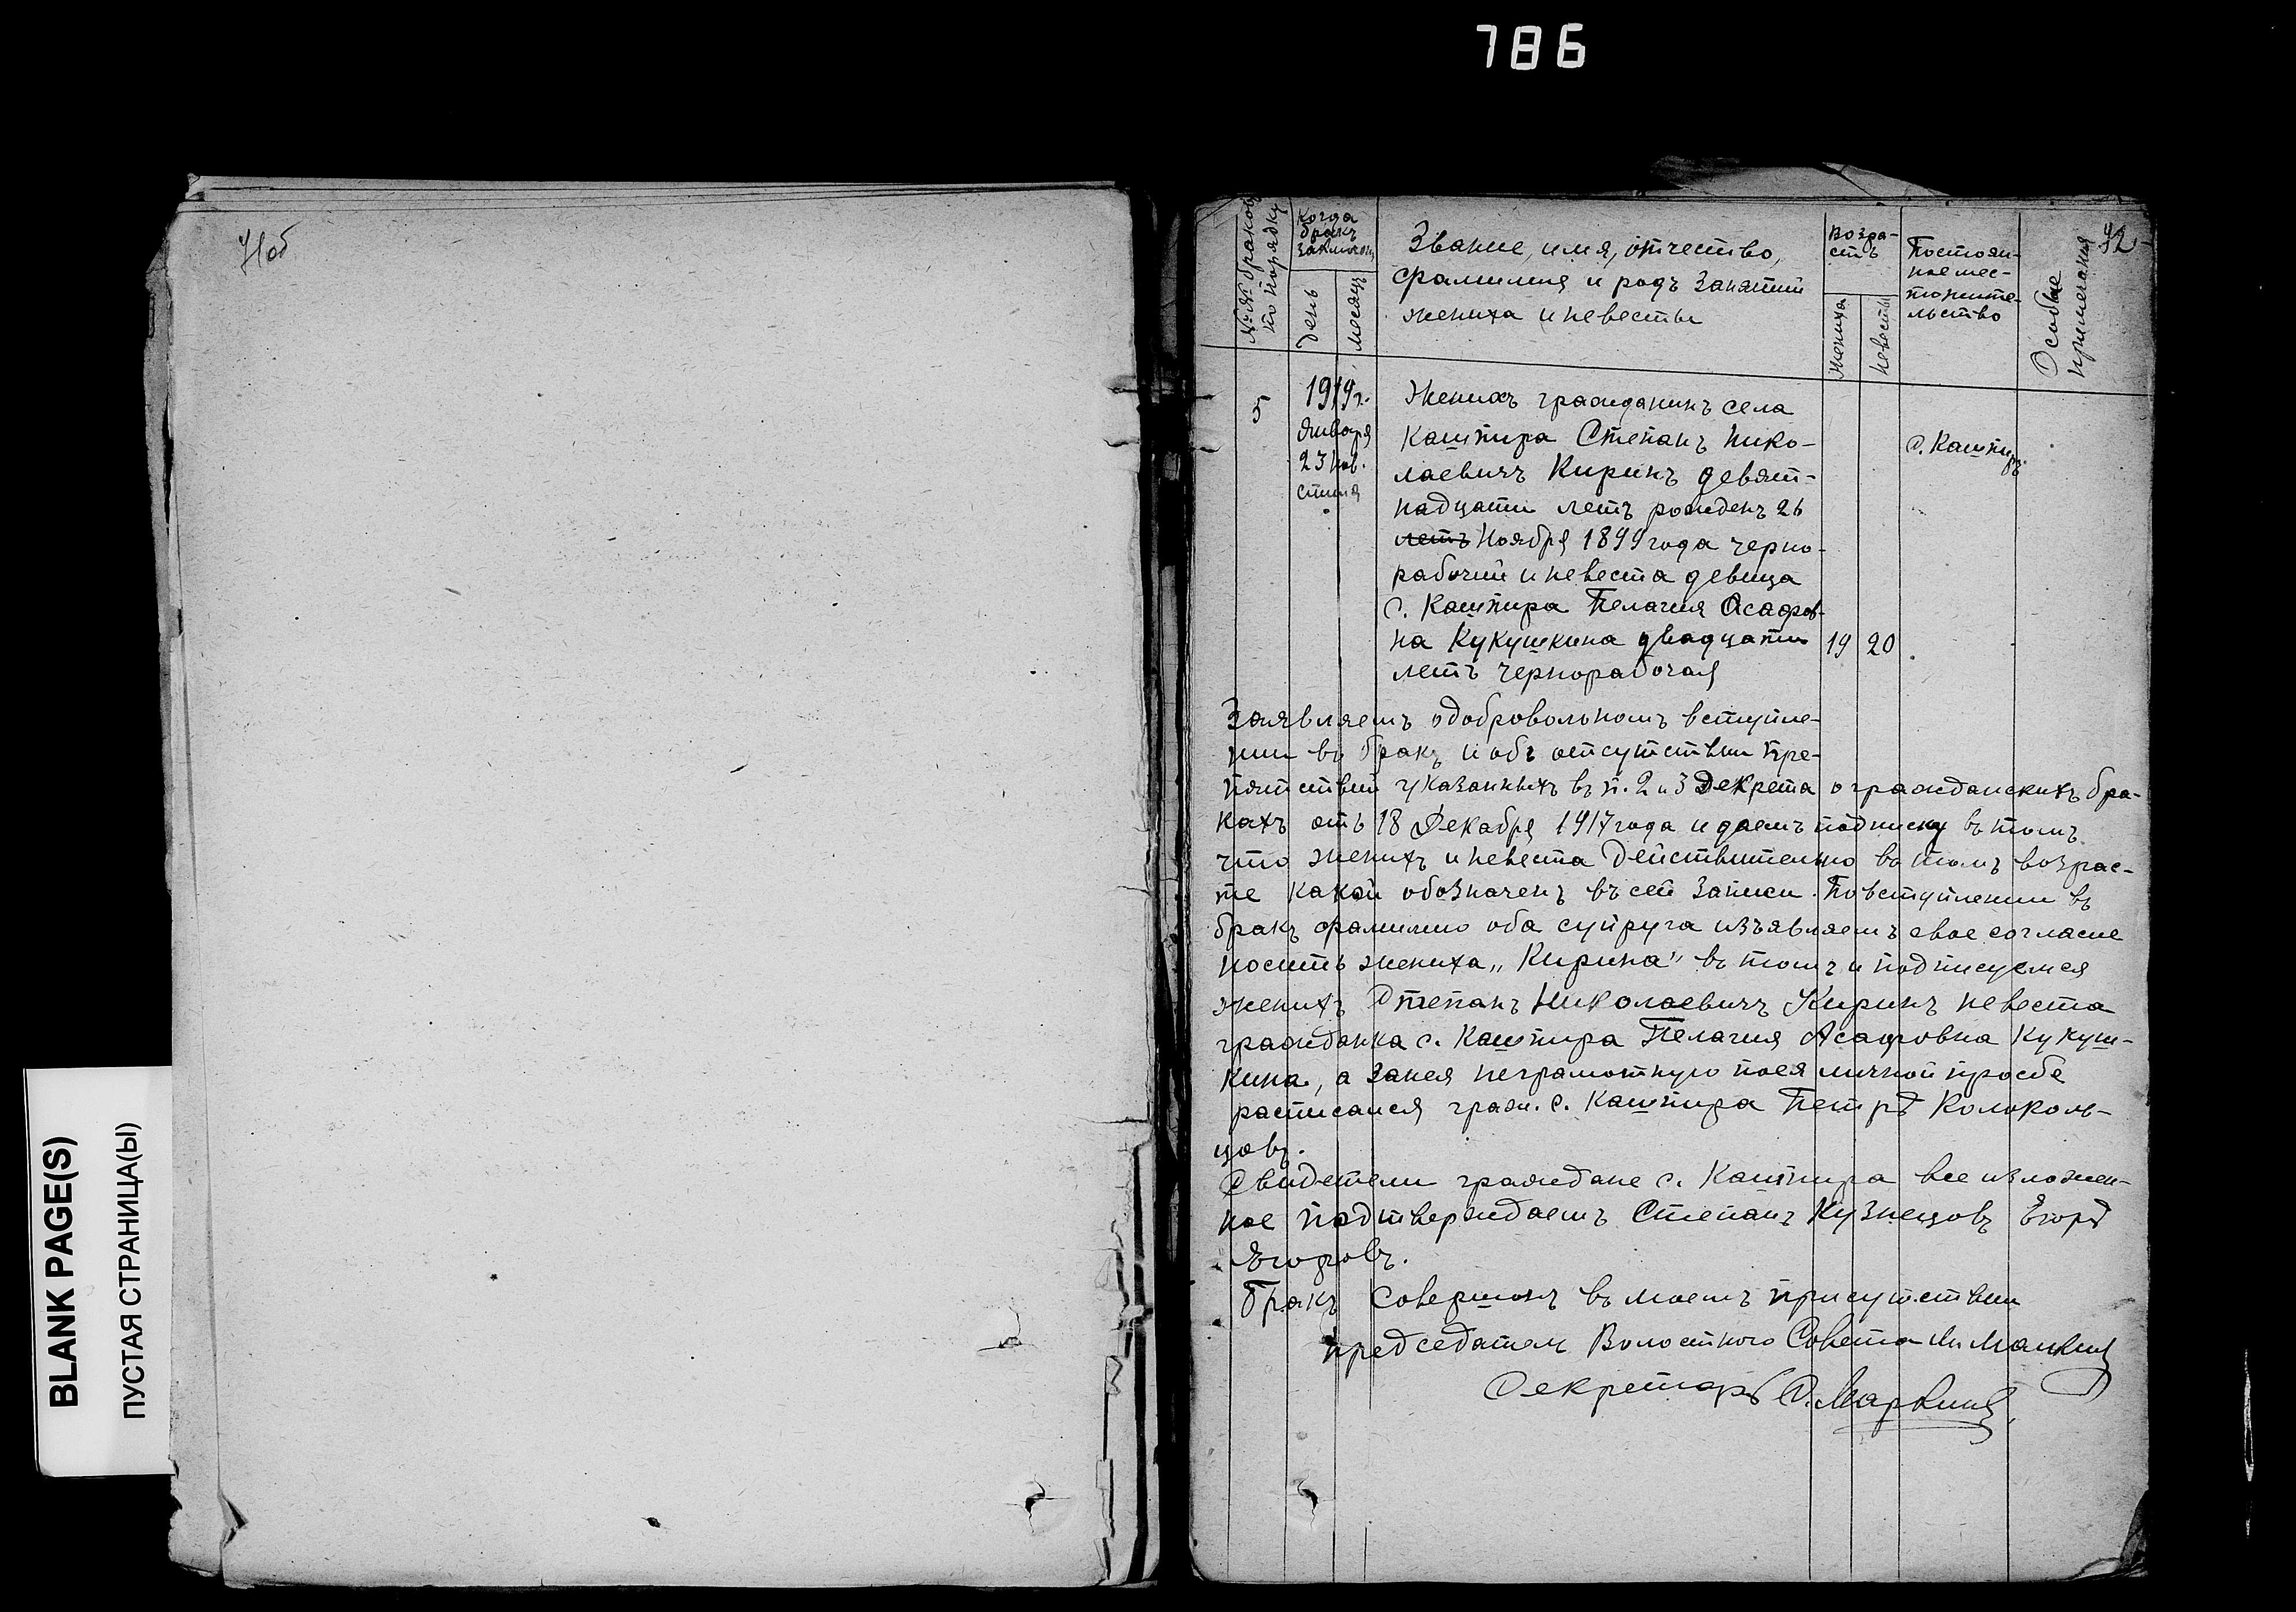 786
BLANK PAGE(S)
ПУСТАЯ СТРАНИЦА(Ы)
№№ браковъ по порядку
Когда бракъ заключенъ
день
месяцъ
Звание, имя, отчество,
фамилия и родъ занятий
жениха и невесты
Возра-
стъ
жениха
невесты
Постоян-
ное мес-
тожите-
льство
Особые
примечания
5
1919 г.
Января
23 нов.
стиля
Женихъ гражданинъ села
Кашпира Степанъ Нико-
лаевичъ Киринъ девят-
надцати летъ рожденъ 26
летъ Ноября 1899 года черно-
рабочий и невеста девица
с. Кашпира Пелагия Асафов-
на Кукушкина двадцати
летъ чернорабочая
19 20
с. Кашпиръ
Заявляемъ о добровольномъ вступле-
нии въ бракъ и объ отсутствии пре-
пятствий указанныхъ въ п. 2 и 3 Декрета о гражданскихъ бра-
кахъ отъ 18 Декабря 1917 года и даемъ подписку въ томъ
что женихъ и невеста действительно въ томъ возрас-
те какой обозначенъ въ сей записи. По вступлении въ
бракъ фамилию оба супруга изъявляемъ свое согласие
носить жениха „Кирина" въ томъ и подписуемся
женихъ Степанъ Николаевичъ Киринъ невеста
гражданка с. Кашпира Пелагия Асафовна Кукуш-
кина, а за нея неграмотную по ея личной просбе
расписался граж. с. Кашпира Петръ Колоколь-
цовъ.
Свидетели граждане с. Кашпира все изложен-
ное подтверждаемъ Степанъ Кузнецовъ Егоръ
Егоровъ.
Бракъ совершонъ въ моемъ присутствии
председатель Волостного Совета
Секретарь